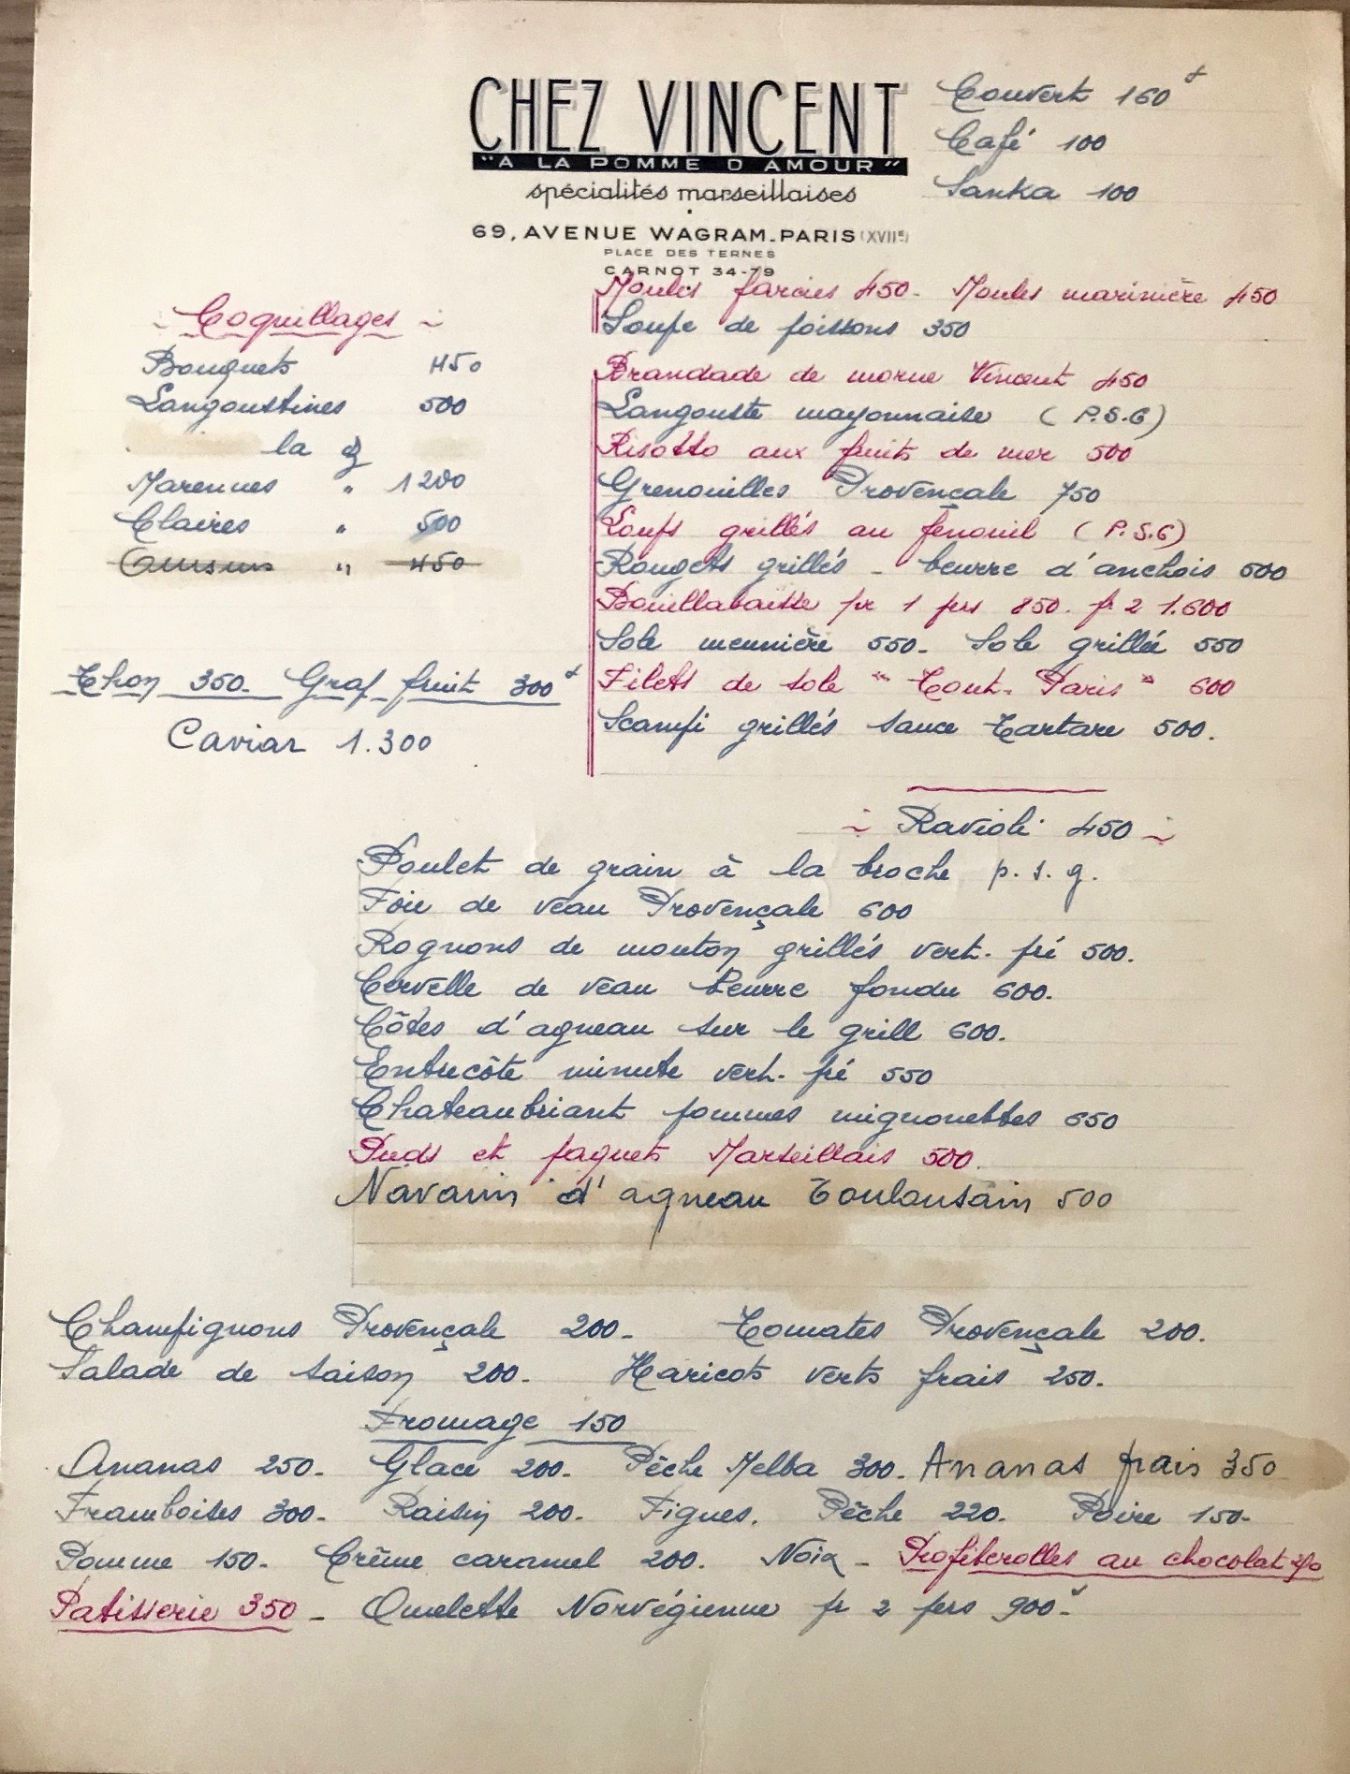 CHEZ VINCENT
"A LA POMME D'AMOUR"
spécialités marseillaises
69, AVENUE WAGRAM - PARIS (XVIIe)
PLACE DES TERNES
CARNOT 34-79
Couvert 160
Café 100
Sanka 100
Coquillages
Bouquets 450
Langoustines 500
la dz
Marennes " 1200
Claires " 500
" 450
Thon 350 - Graf-fruit 300
Caviar 1.300
Moules farcies 450 - Moules marinière 450
Soupe de poissons 350
Brandade de morue Vincent 450
Langouste mayonnaise (P.S.G)
Risotto aux fruits de mer 500
Grenouilles Provençale 750
Loups grillés au fenouil (P.S.G)
Rougets grillés - beurre d'anchois 600
Bouillabaisse pr 1 pers 850. pr 2 1.600
Sole meunière 550 - Sole grillée 550
Filets de sole "Tout-Paris" 600
Scampi grillés sauce tartare 500.
Ravioli 450
Poulet de grain à la broche p.s.g.
Foie de veau Provençale 600
Rognons de mouton grillés vert-pré 500.
Cervelle de veau beurre fondu 600.
Côtes d'agneau sur le grill 600.
Entrecôte minute vert-pré 550
Chateaubriant pommes mignonettes 650
Pieds et paquets Marseillais 500
Navarin d'agneau Toulousain 500
Champignons Provençale 200 - Tomates Provençale 200.
Salade de saison 200. Haricots verts frais 250.
Fromage 150
Ananas 250 - Glace 200. Pêche Melba 300. Ananas frais 350
Framboises 300 - Raisin 200. Figues. Pêche 220. Poire 150 -
Pomme 150 - Crème caramel 200. Noix - Profiterolles au chocolat
Patisserie 350 - Omelette Norvégienne pr 2 pers 900